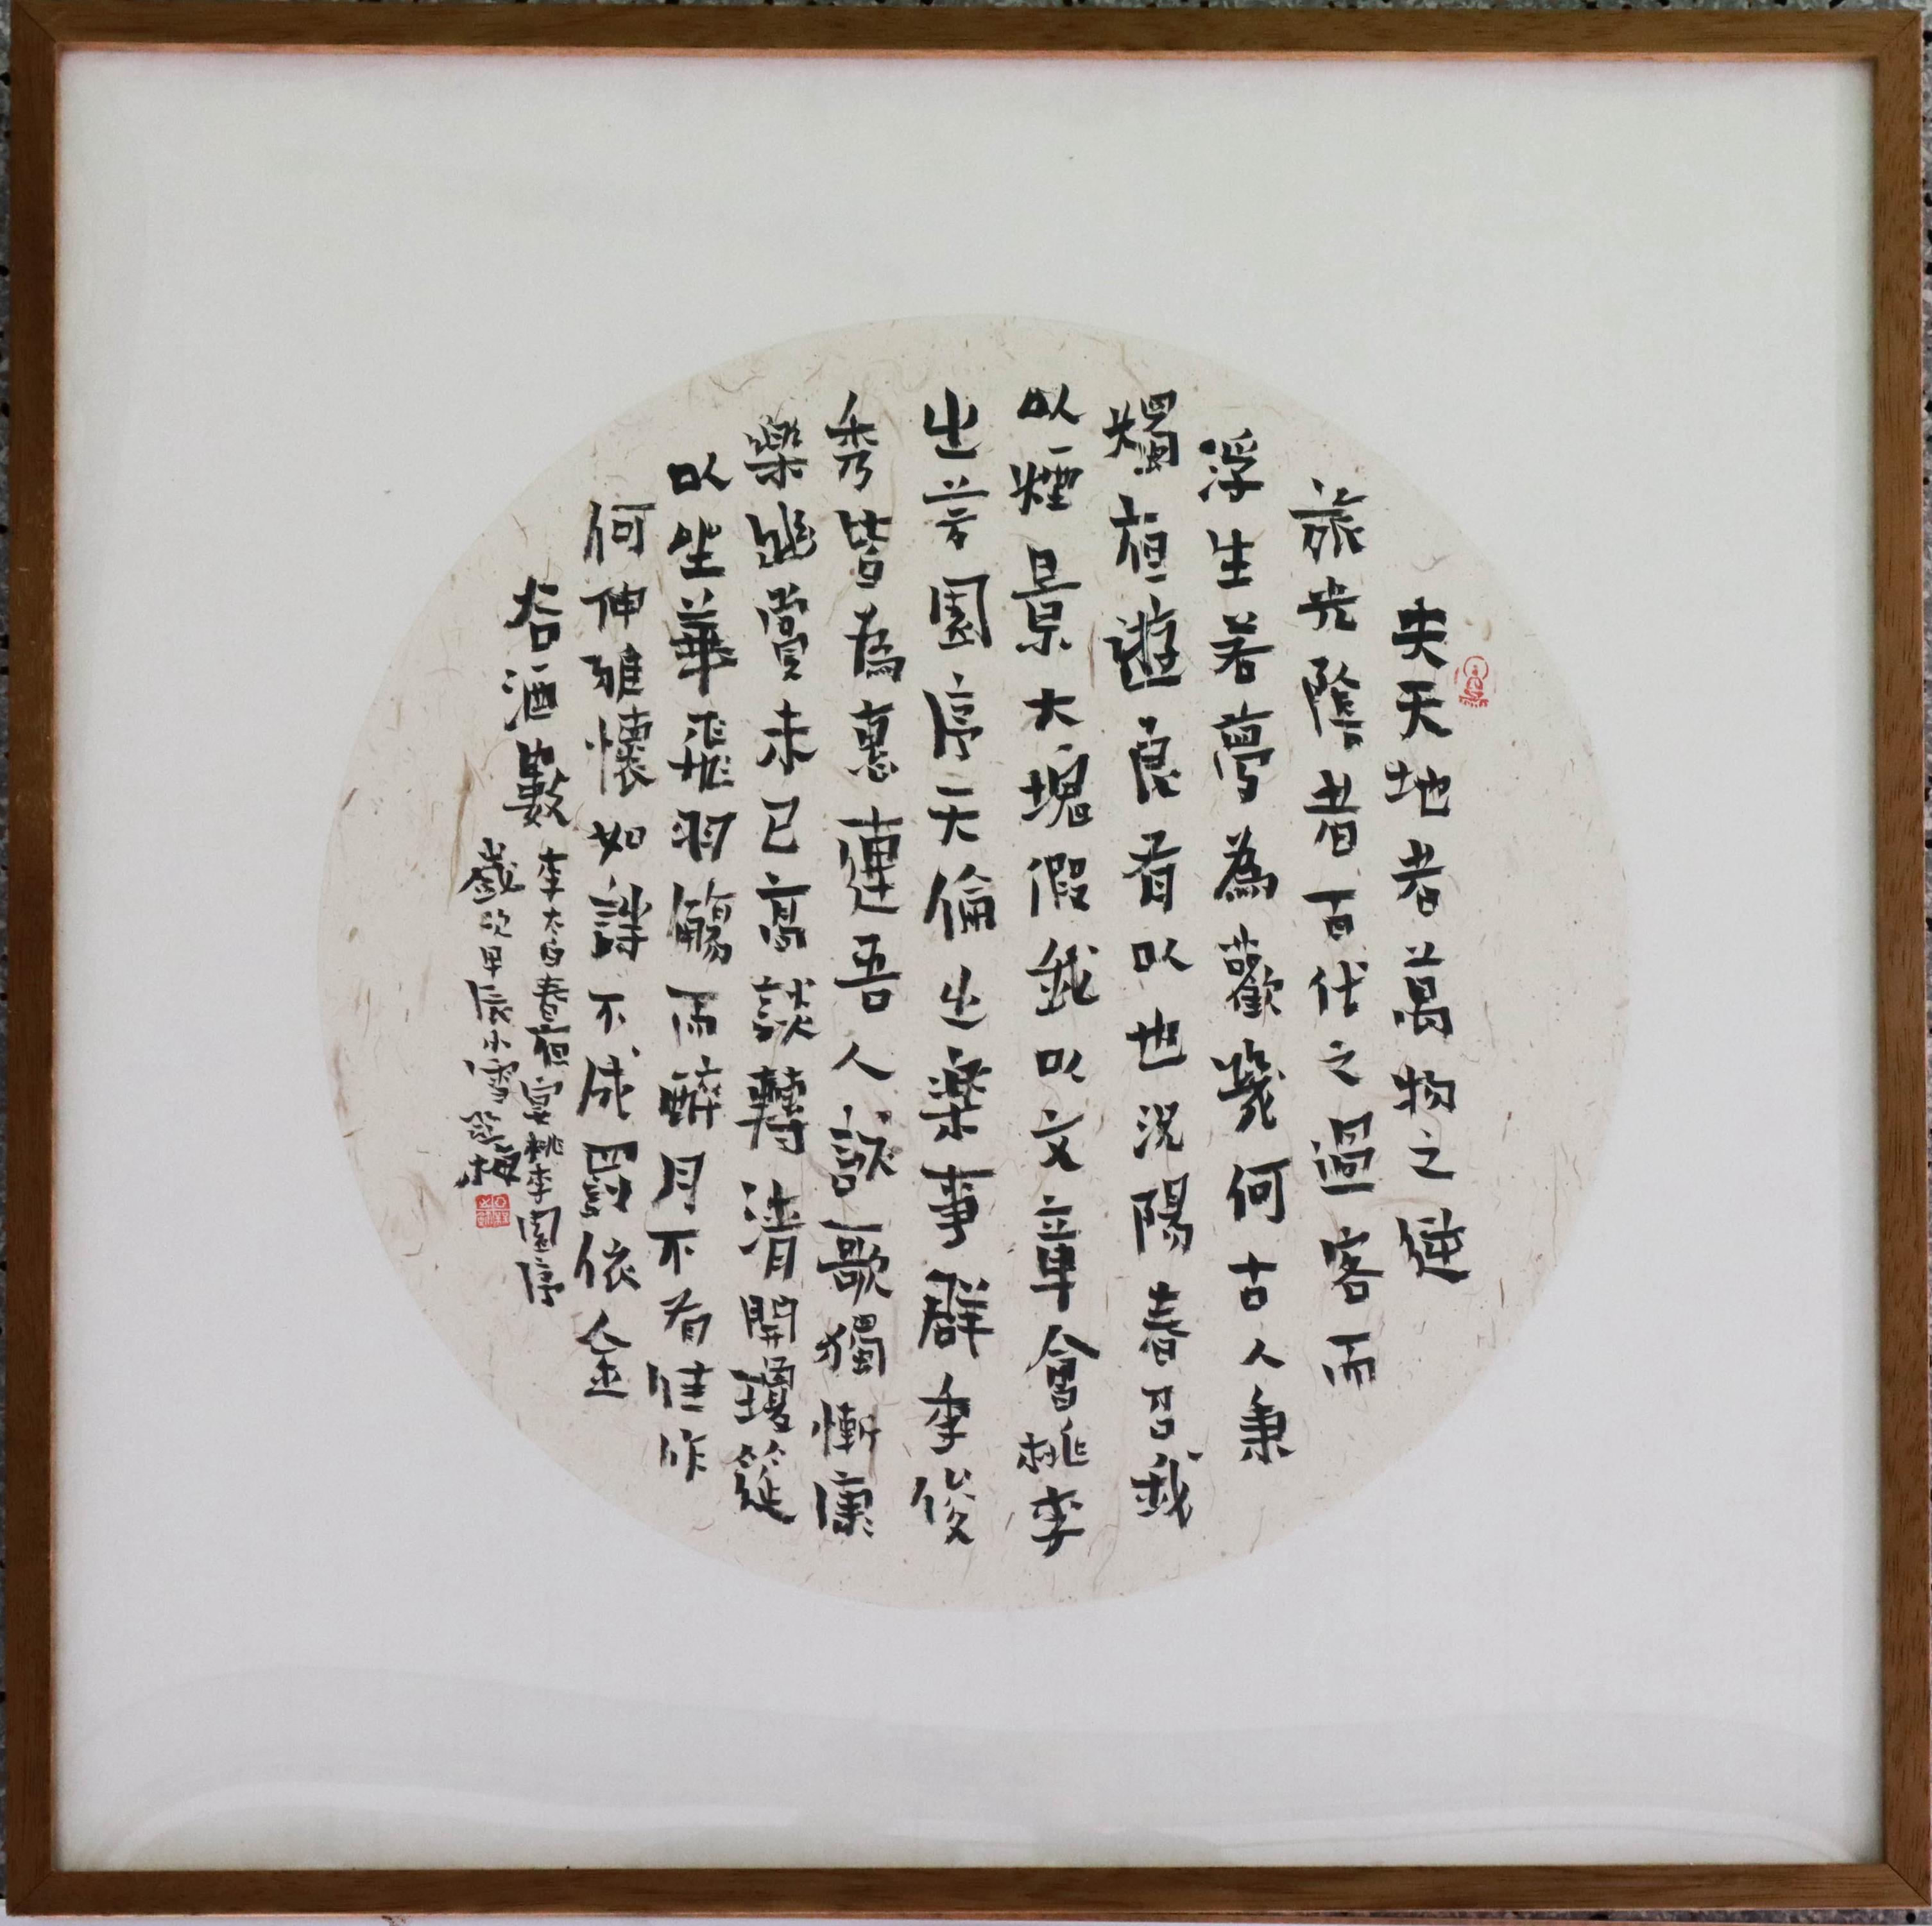 夫天地者萬物之逆
旅光陰者百代之過客而
浮生若夢為歡幾何古人秉
燭夜遊良有以也況陽春召我
以煙景大塊假我以文章會桃李
之芳園序天倫之樂事群季俊
秀皆為惠連吾人詠歌獨慚康
樂幽賞未已高談轉清開瓊筵
以坐華飛羽觴而醉月不有佳作
何伸雅懷如詩不成罰依金
谷酒數
李太白春夜宴桃李園序
歲次甲辰小雪梅